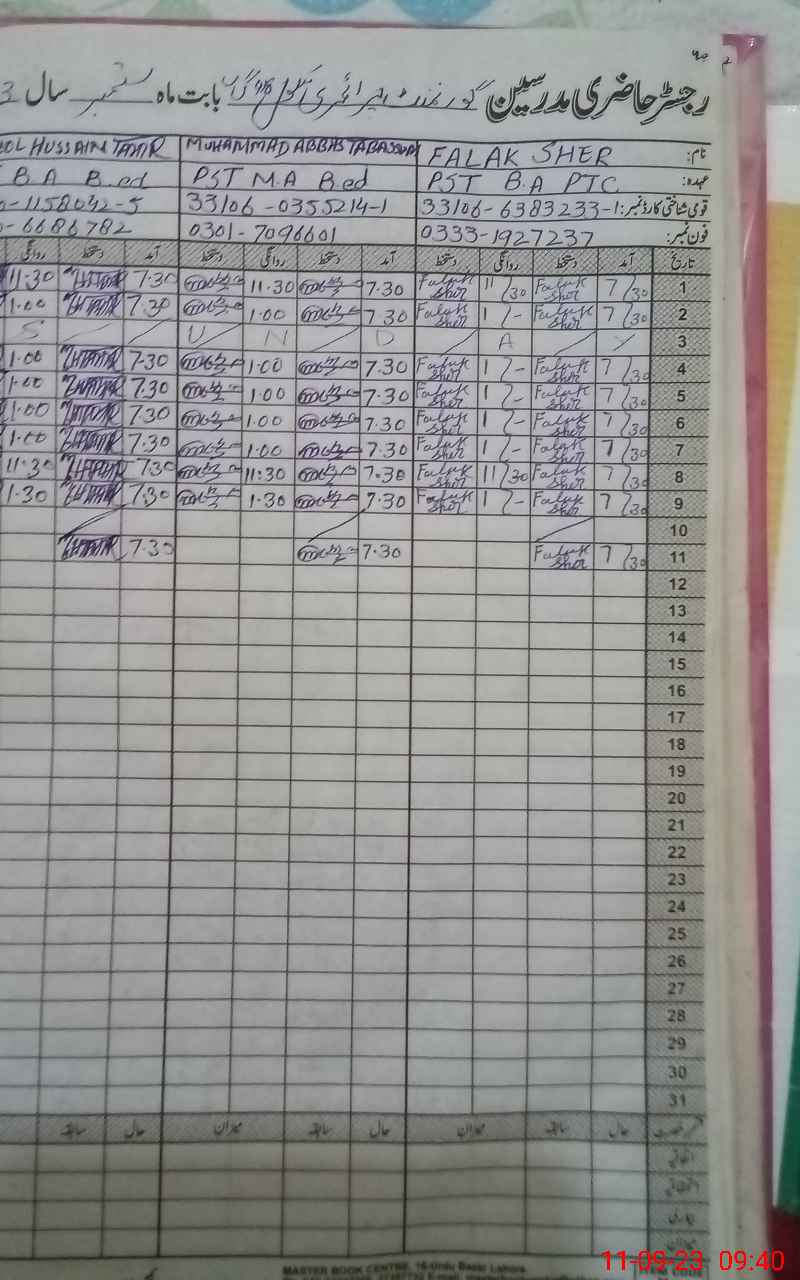 رجسٹر حاضری مدرسین گورنمنٹ پرائمری سکول بابت ماہ ستمبر سال 3
نام: FALAK SHER MUHAMMAD ABBAS TABASSUM HUSSAIN TAHIR
عہدہ: PST B.A PTC PST M.A B.ed B A B.ed
قومی شناختی کارڈ نمبر: 33106-6383233-1 33106-0355214-1 -1158042-5
فون نمبر: 0333-1927237 0301-7096601 -6686782
تاریخ آمد دستخط روانگی دستخط آمد دستخط روانگی دستخط آمد دستخط روانگی
1 7/30 Falak Sher 11/30 Falak Sher 7.30 11.30 7.30 11.30
2 7/30 Falak Sher 1/- Falak Sher 7.30 1.00 7.30 1.00
3 S U N D A Y
4 7/30 Falak Sher 1/- Falak Sher 7.30 1.00 7.30 1.00
5 7/30 Falak Sher 1/- Falak Sher 7.30 1.00 7.30 1.00
6 7/30 Falak Sher 1/- Falak Sher 7.30 1.00 7.30 1.00
7 7/30 Falak Sher 1/- Falak Sher 7.30 1.00 7.30 1.00
8 7/30 Falak Sher 11/30 Falak Sher 7.30 11.30 7.30 11.30
9 7/30 Falak Sher 1/- Falak Sher 7.30 1.30 7.30 1.30
10
11 7/30 Falak Sher 7.30 7.30
12
13
14
15
16
17
18
19
20
21
22
23
24
25
26
27
28
29
30
31
حال سابقہ میزان حال سابقہ میزان حال سابقہ
اتفاقیہ
میزان
MASTER BOOK CENTRE, 16-Urdu Bazar Lahore.
11-09-23 09:40